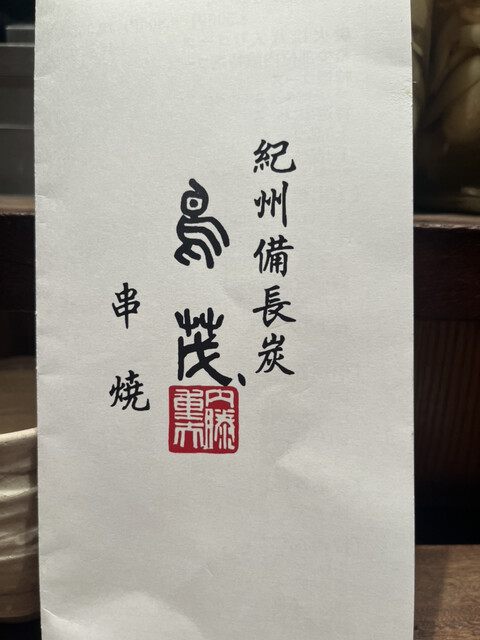 紀州備長炭
鳥茂
串焼